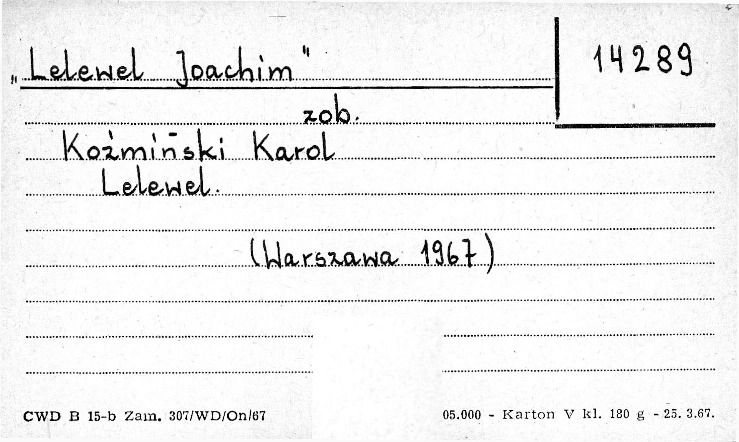 „Lelewel Joachim"
14289
zob.
Koźmiński Karol
Lelewel.
(Warszawa 1967)
CWD B 15-b Zam. 307/WD/On/67
05.000 - Karton V kl. 180 g - 25. 3.67.